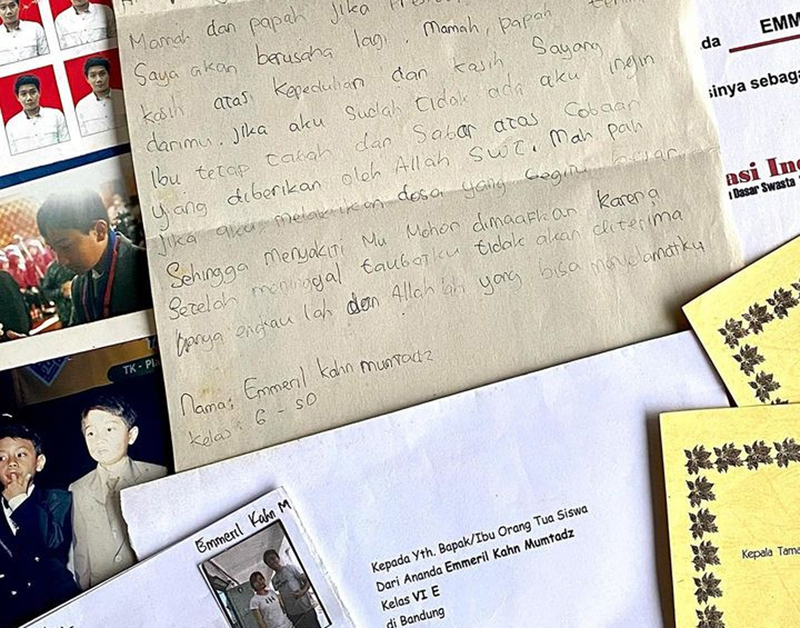 Mamah dan papah jika
Saya akan berusaha lagi. Mamah, papah
kasih atas kepedulian dan kasih sayang
darimu. Jika aku sudah tidak ada aku ingin
Ibu tetap tabah dan Sabar atas Cobaan
yang diberikan oleh Allah SWT. Mah pah
jika aku melakukan dosa yang begitu
Sehingga menyakiti Mu Mohon dimaafkan karena
Setelah meninggal taubatku tidak akan diterima
hanya engkau lah dan Allah lah yang bisa menyelamatku
Nama: Emmeril kahn mumtadz
kelas: 6 - SD
TK - Pla
Emmeril Kahn M
Kepada Yth. Bapak/Ibu Orang Tua Siswa
Dari Ananda Emmeril Kahn Mumtadz
Kelas VI E
di Bandung
da EMM
sinya sebaga
asi In
Dasar Swasta
Kepala Tama